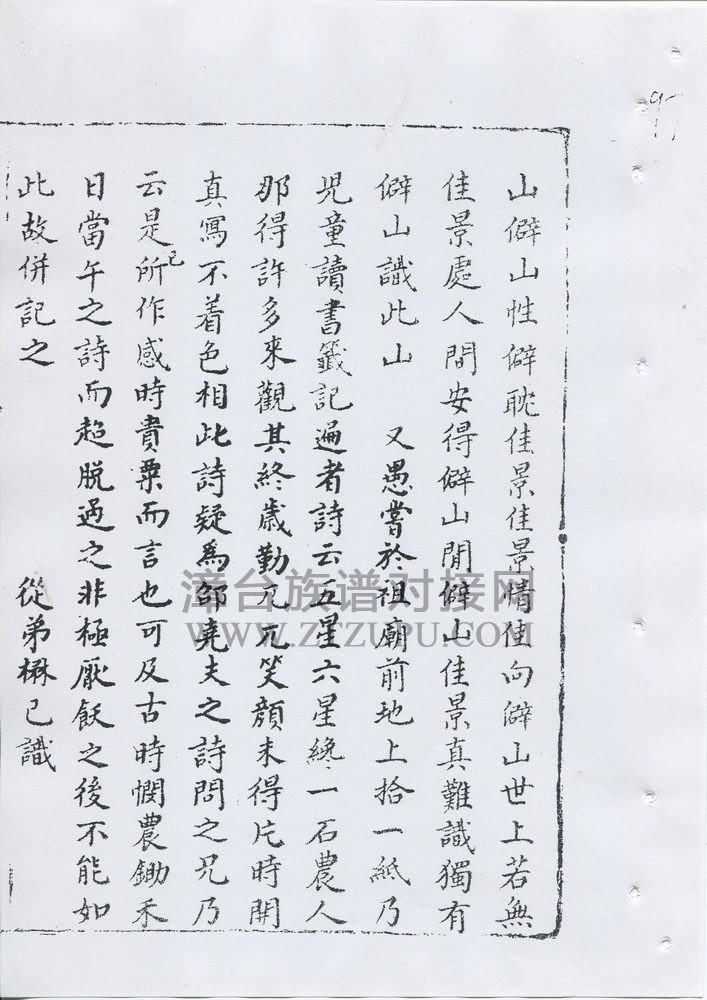 山僻山性僻耽佳景佳景情佳向僻山世上若無
佳景處人間安得僻山閒僻山佳景真難識獨有
僻山識此山 又愚嘗於祖廟前地上拾一紙乃
児童讀書籤記遍者詩云五星六星纔一石農人
那得許多來觀其終歲勤兀兀笑顏未得片時開
真寫不着色相此詩疑為邵堯夫之詩問之兄乃
云是所己作感時貴粟而言也可及古時憫農鋤禾
日當午之詩而超脱過之非極厭飫之後不能如
此故併記之 從弟楙已識
漳台族谱对接网
WWW.ZTZUPU.COM